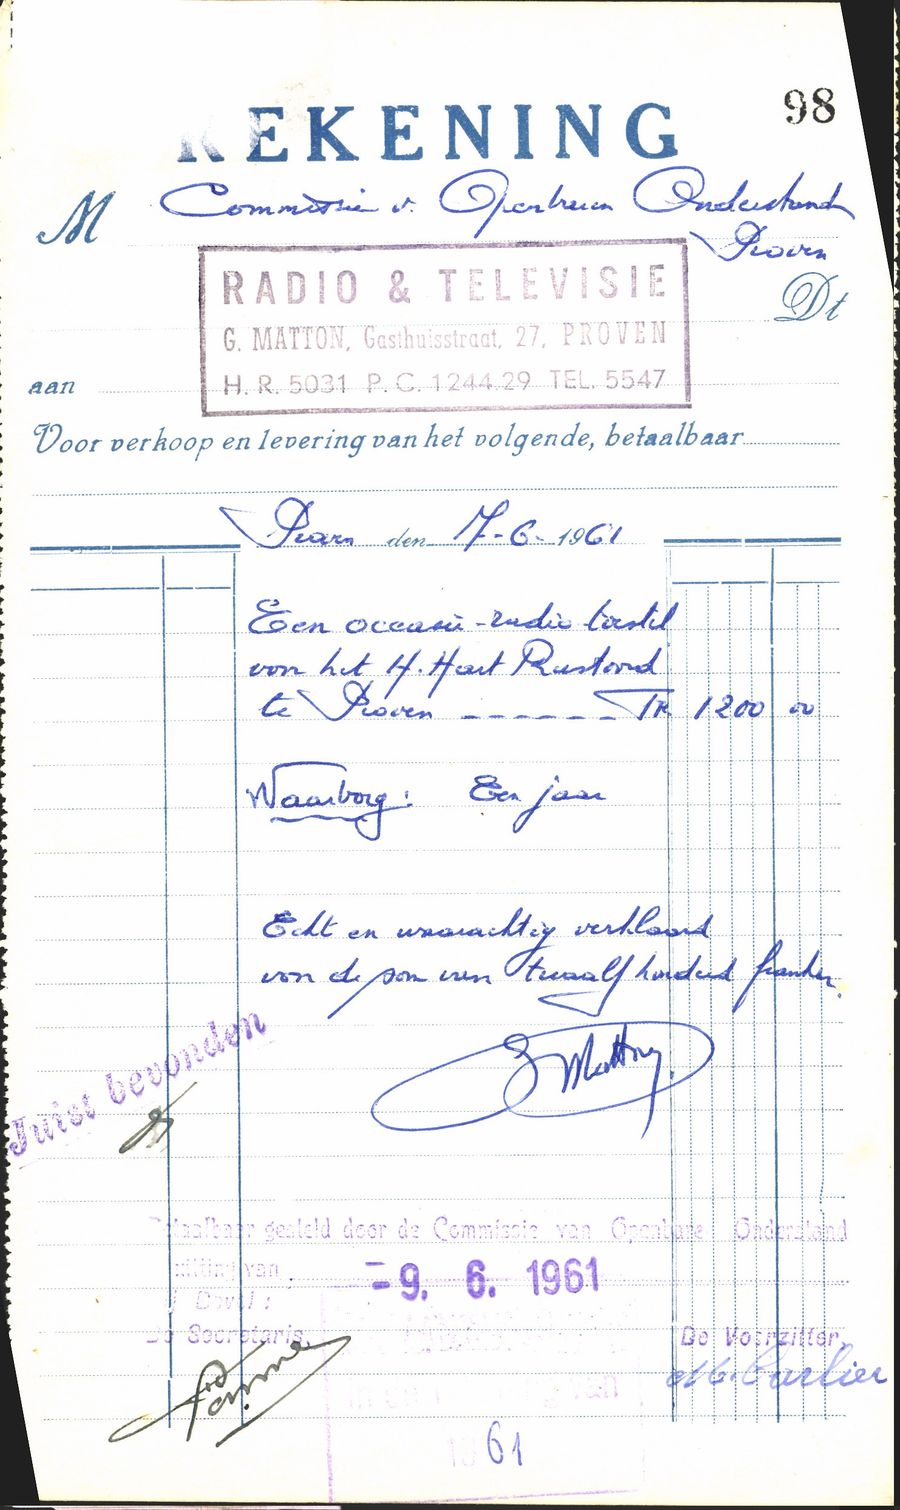 98
REKENING
M Commissie v. Openbaren Onderstand
Proven
RADIO & TELEVISIE
Dt
G. MATTON, Gasthuisstraat, 27, PROVEN
aan H. R. 5031 P. C. 1244.29 TEL. 5547
Voor verkoop en levering van het volgende, betaalbaar
Proven den 7-6-1961
Een occasie-radio toestel
van het H. Hart Rustoord
te Proven ------ Fr 1200 00
Waarborg: Een jaar
Echt en waarachtig verklaard
van de som van twaalf honderd franken.
Juist bevonden
G Matton
Betaalbaar gesteld door de Commissie van Openbare Onderstand
zitting van -9. 6. 1961
Bevel:
De Secretaris, De Voorzitter,
M. Carlier
1961